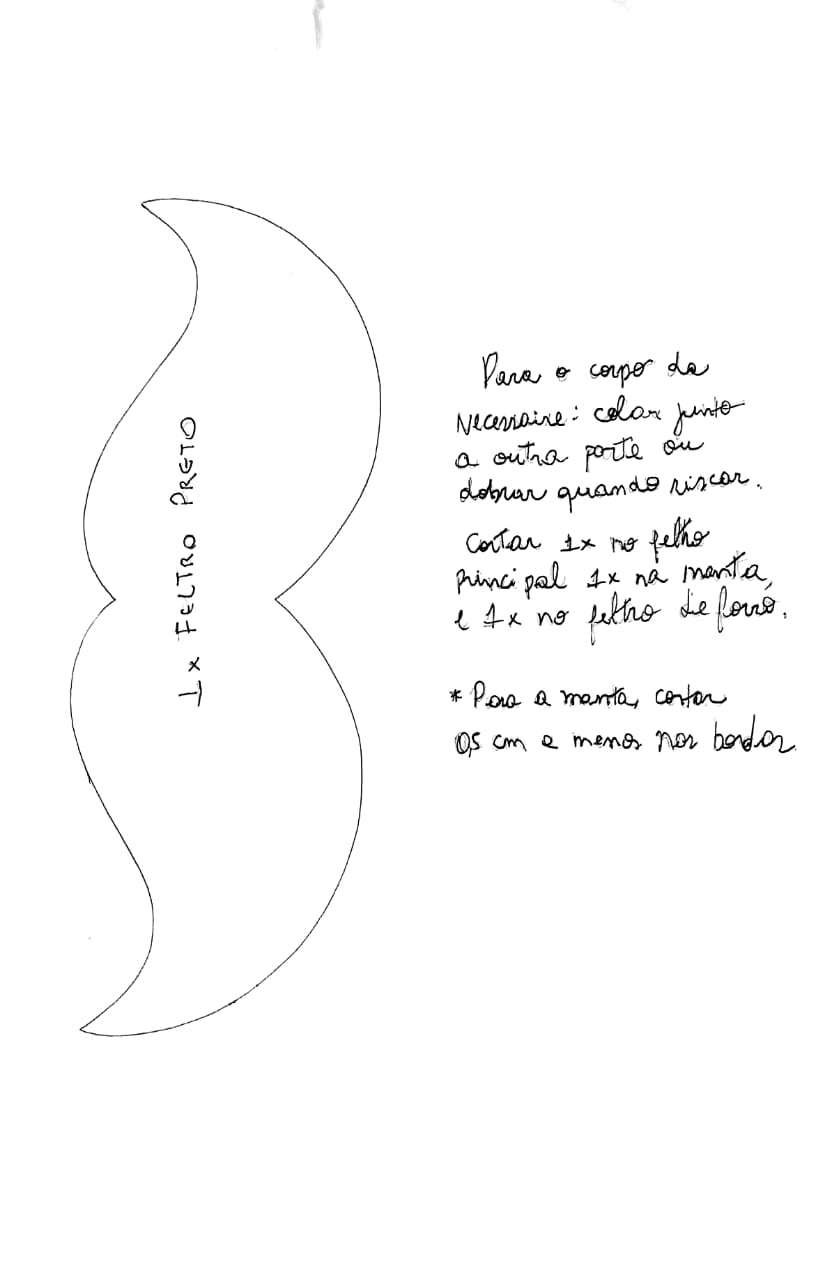 1x FELTRO PRETO
Para o corpo da
Necessaire: colar junto
a outra parte ou
dobrar quando riscar.
Cortar 1x no feltro
principal 1x na manta,
e 1x no feltro de forro.
* Para a manta, cortar
0,5 cm a menos nas bordas.